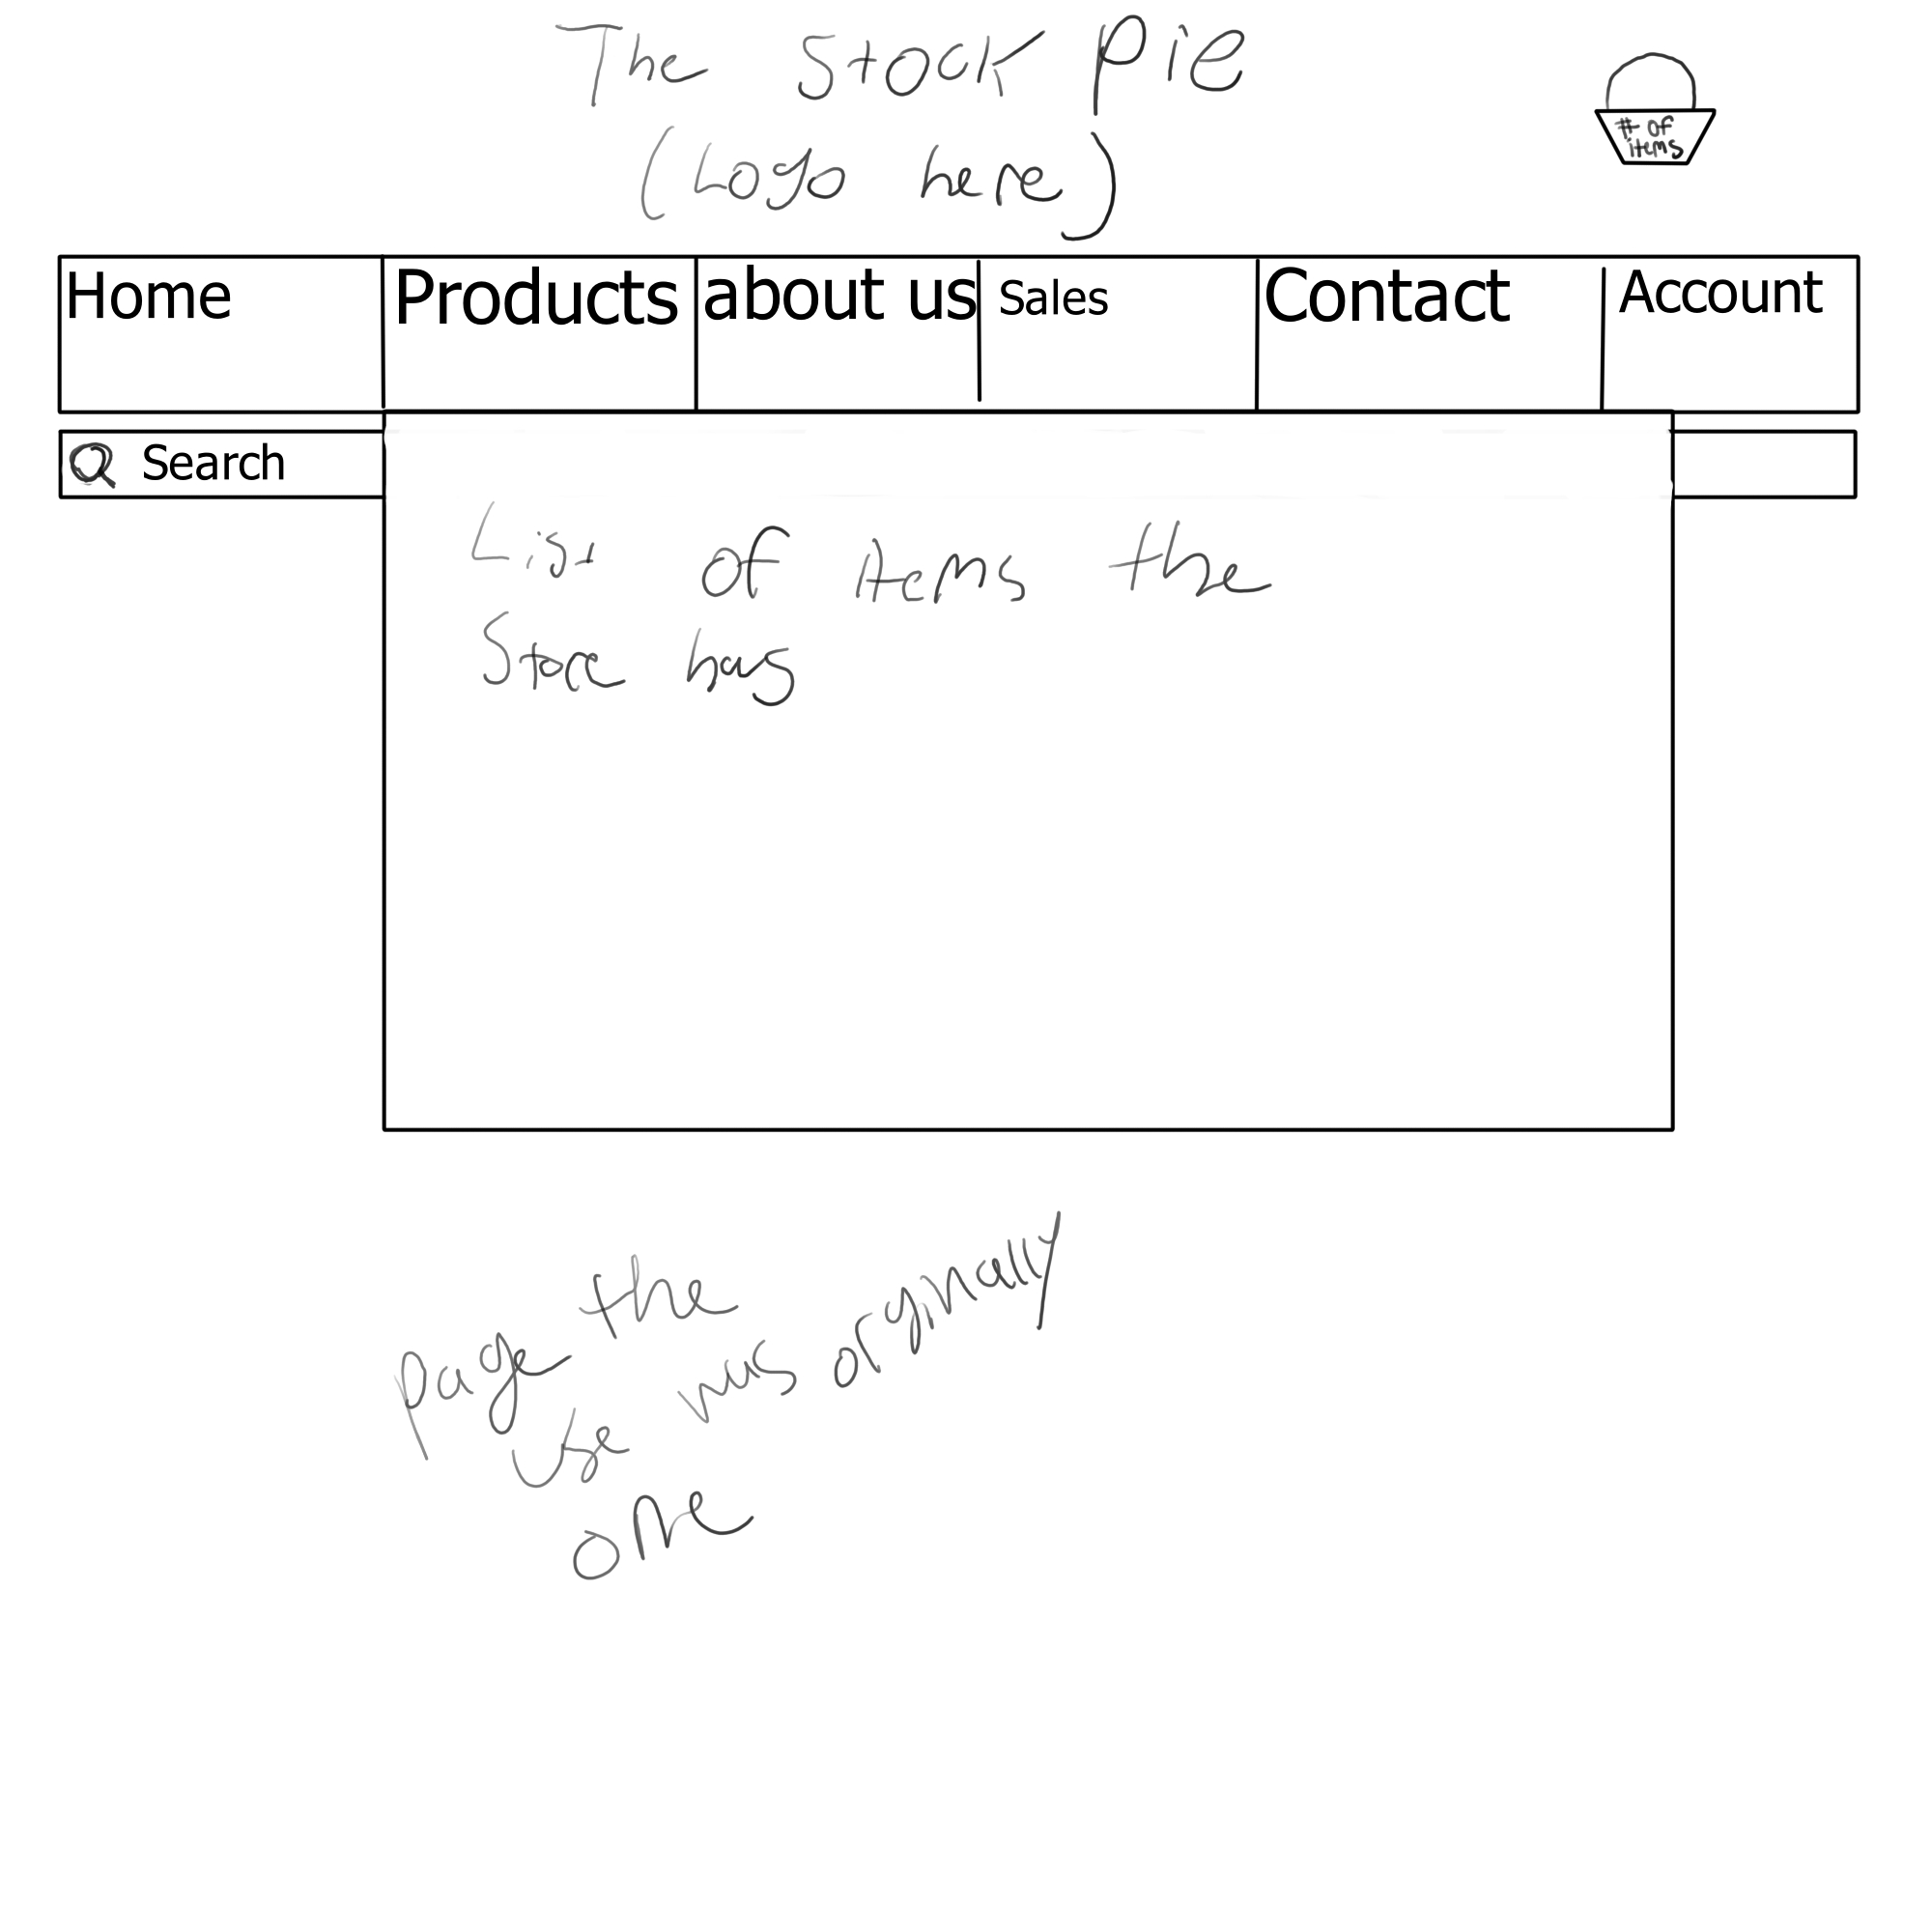 The Stock Pie
(Logo here)
# of
items
Home Products about us Sales Contact Account
Search
List of items the
Store has
page the
use was orginally
one